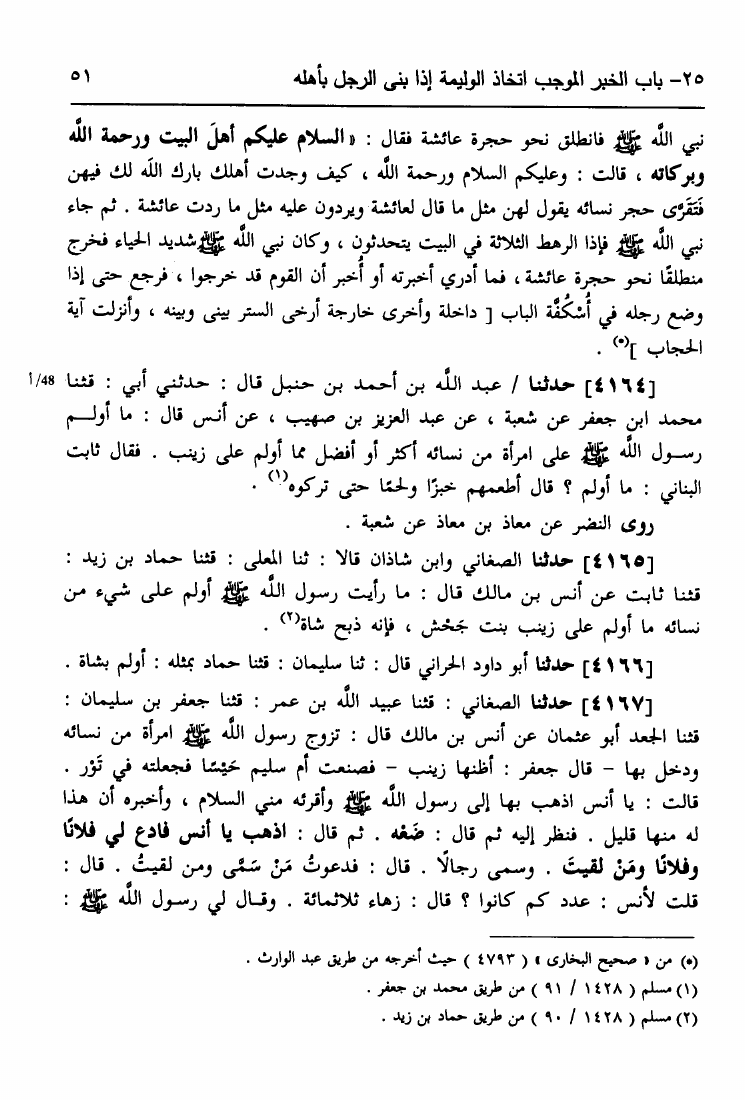 ٢٥- باب الخبر الموجب اتخاذ الوليمة إذا بنى الرجل بأهله ٥١
نبي اللَّه ﷺ فانطلق نحو حجرة عائشة فقال : « السلام عليكم أهلَ البيت ورحمة اللَّه
وبركاته ، قالت : وعليكم السلام ورحمة اللَّه ، كيف وجدت أهلك بارك اللَّه لك فيهن
فَتَقَرَّى حجر نسائه يقول لهن مثل ما قال لعائشة ويردون عليه مثل ما ردت عائشة . ثم جاء
نبي اللَّه ﷺ فإذا الرهط الثلاثة في البيت يتحدثون ، وكان نبي اللَّه ﷺ شديد الحياء فخرج
منطلقًا نحو حجرة عائشة ، فما أدري أخبرته أو أُخبر أن القوم قد خرجوا ، فرجع حتى إذا
وضع رجله في أُسْكُفَّة الباب [ داخلة وأخرى خارجة أرخى الستر بينى وبينه ، وأنزلت آية
الحجاب ](*) .
[٤١٦٤] حدثنا / عبد اللَّه بن أحمد بن حنبل قال : حدثني أبي : قثنا 48/أ
محمد ابن جعفر عن شعبة ، عن عبد العزيز بن صهيب ، عن أنس قال : ما أولم
رسول اللَّه ﷺ على امرأة من نسائه أكثر أو أفضل مما أولم على زينب . فقال ثابت
البناني : ما أولم ؟ قال أطعمهم خبزًا ولحمًا حتى تركوه(١) .
روى النضر عن معاذ بن معاذ عن شعبة .
[٤١٦٥] حدثنا الصغاني وابن شاذان قالا : ثنا المعلى : قثنا حماد بن زيد :
قثنا ثابت عن أنس بن مالك قال : ما رأيت رسول اللَّه ﷺ أولم على شيء من
نسائه ما أولم على زينب بنت جَحْش ، فإنه ذبح شاة(٢) .
[٤١٦٦] حدثنا أبو داود الحراني قال : ثنا سليمان : قثنا حماد بمثله : أولم بشاة .
[٤١٦٧] حدثنا الصغاني : قثنا عبيد اللَّه بن عمر : قثنا جعفر بن سليمان :
قثنا الجعد أبو عثمان عن أنس بن مالك قال : تزوج رسول اللَّه ﷺ امرأة من نسائه
ودخل بها - قال جعفر : أظنها زينب - فصنعت أم سليم حَيْسًا فجعلته في تَوْر .
قالت : يا أنس اذهب بها إلى رسول اللَّه ﷺ وأقرئه مني السلام ، وأخبره أن هذا
له منها قليل . فنظر إليه ثم قال : ضَعْه . ثم قال : اذهب يا أنس فادع لي فلانًا
وفلانًا ومَنْ لقيتَ . وسمى رجالًا . قال : فدعوتُ مَنْ سَمَّى ومن لقيتُ . قال :
قلت لأنس : عدد كم كانوا ؟ قال : زهاء ثلاثمائة . وقال لي رسول اللَّه ﷺ :
(*) من « صحيح البخارى » ( ٤٧٩٣ ) حيث أخرجه من طريق عبد الوارث .
(١) مسلم ( ١٤٢٨ / ٩١ ) من طريق محمد بن جعفر .
(٢) مسلم ( ١٤٢٨ / ٩٠ ) من طريق حماد بن زيد .